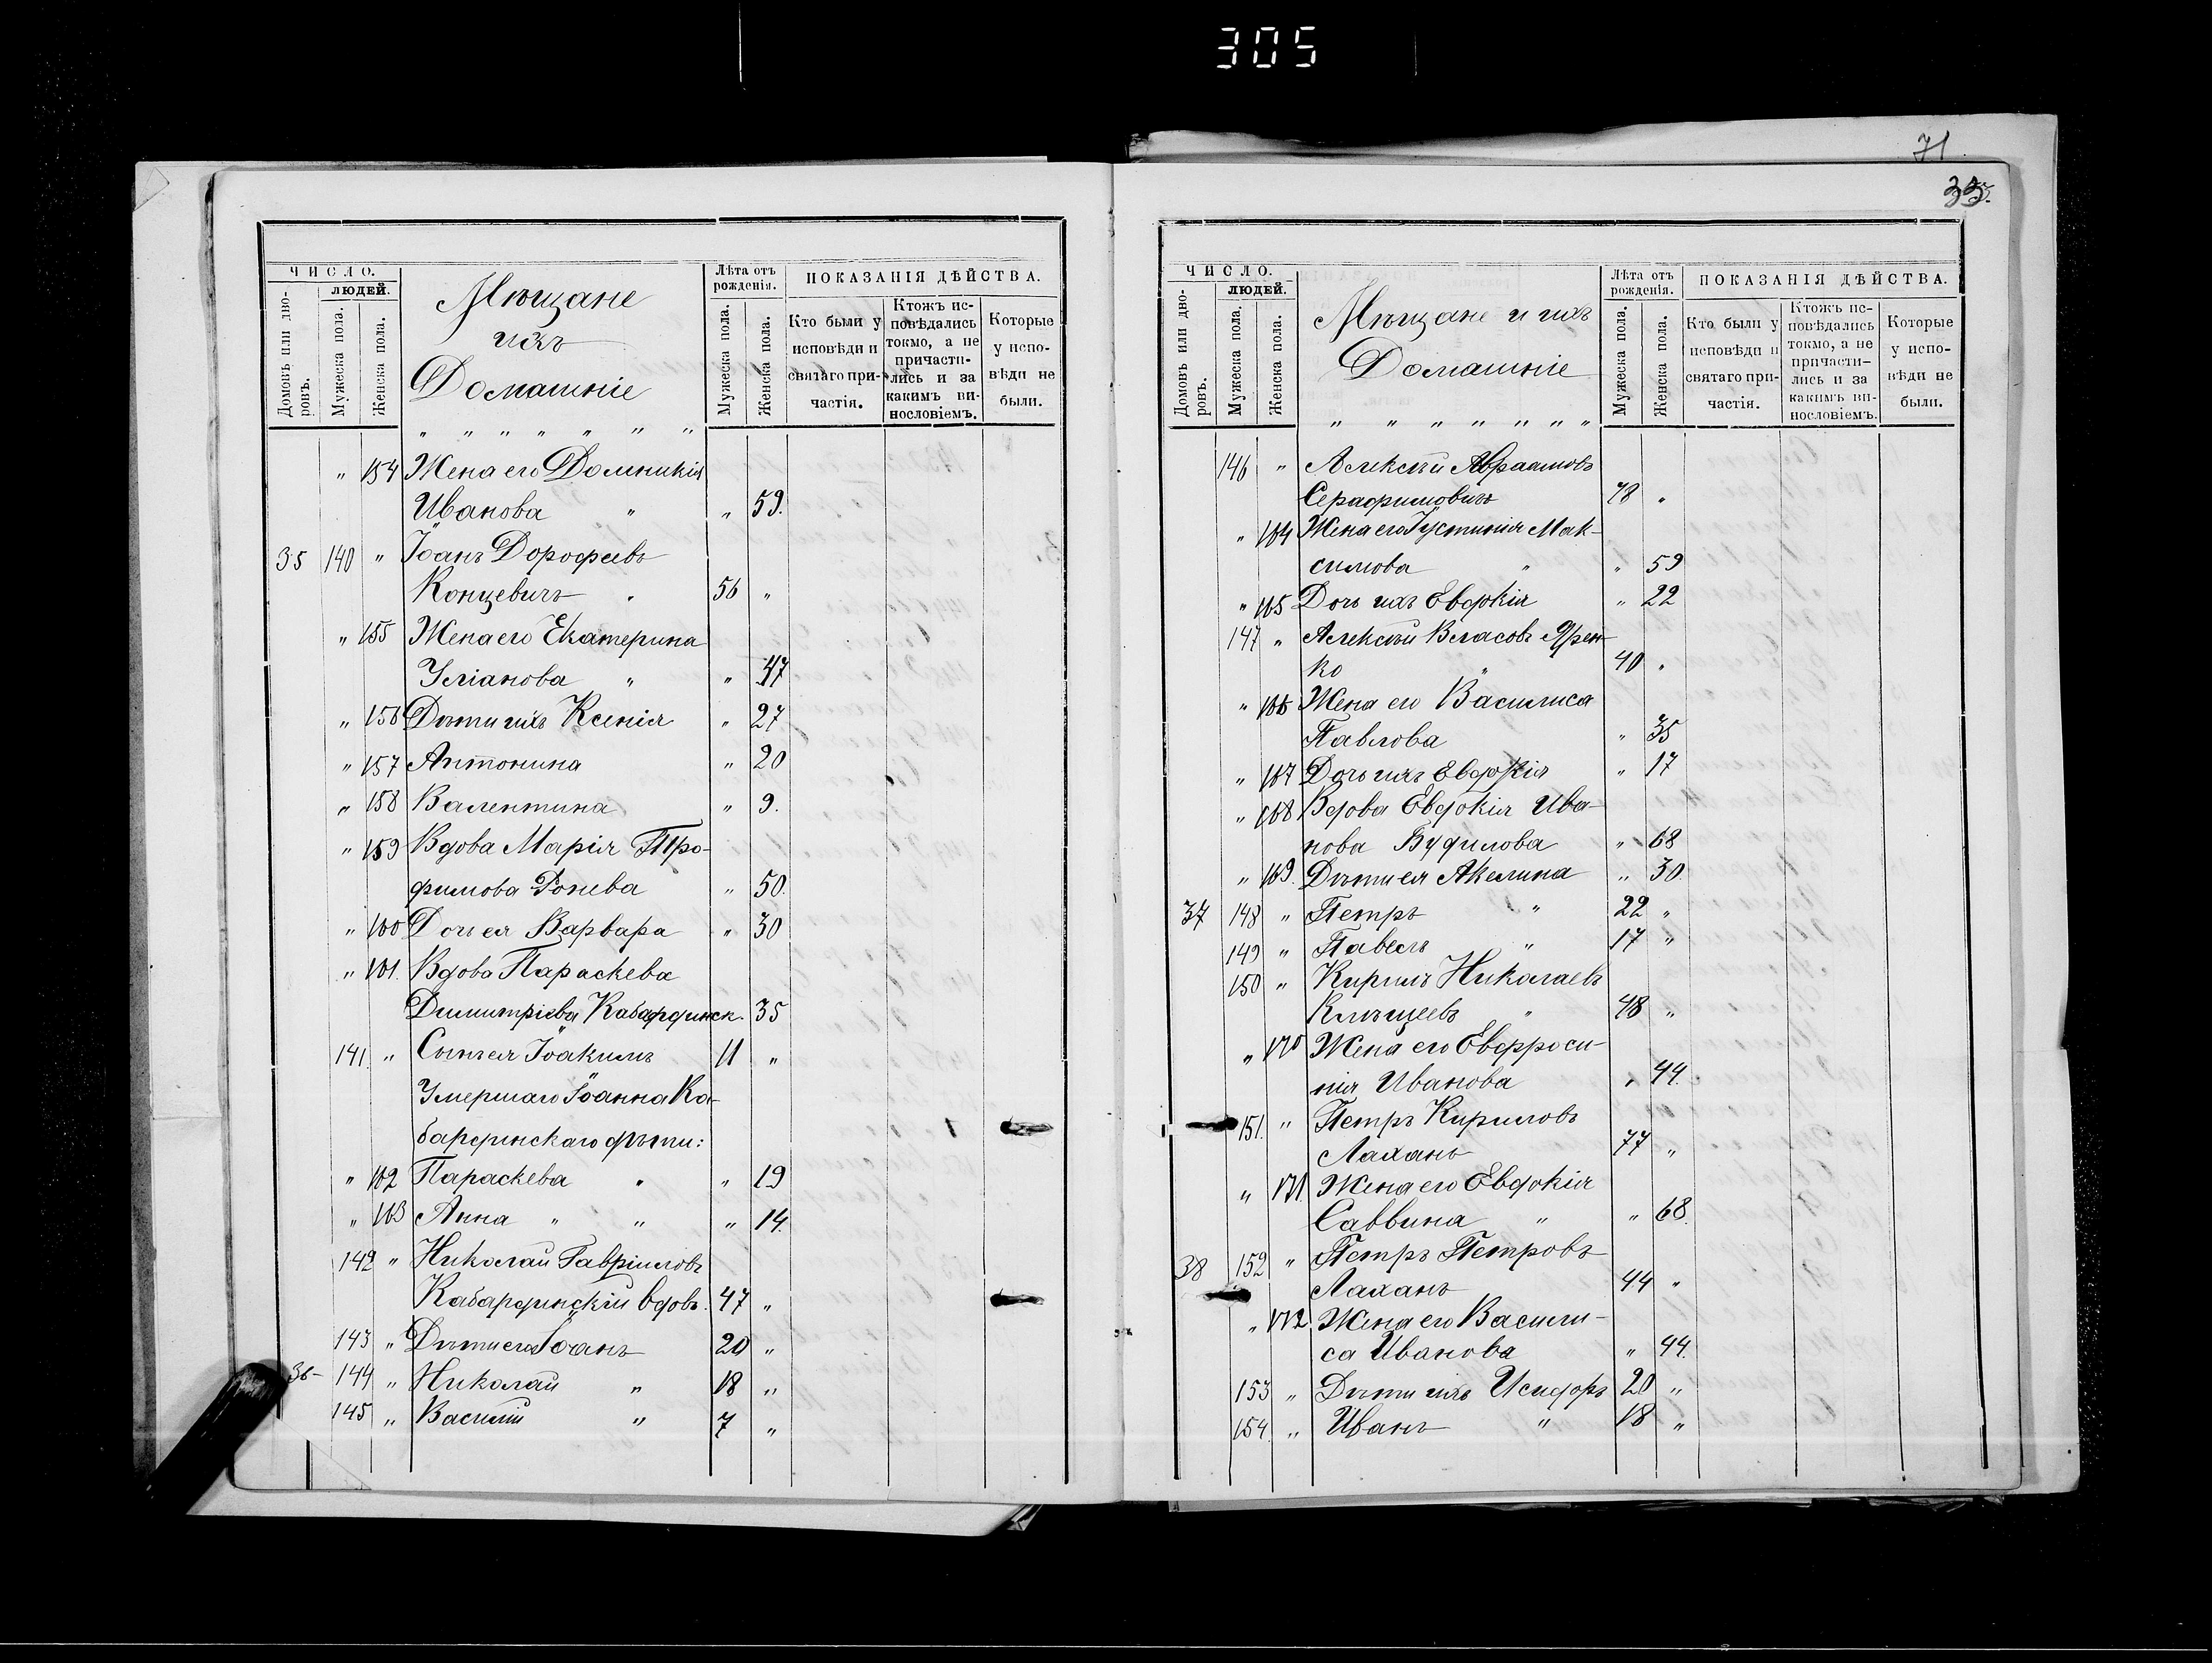 305
71
33.
ЧИСЛО.
Домовъ или дворовъ.
людей.
Мужеска пола.
Женска пола.
Мѣщане
ихъ
Домашніе
Лѣта отъ рожденія.
Мужеска пола.
Женска пола.
ПОКАЗАНІЯ ДѢЙСТВА.
Кто были у исповѣди и святаго причастія.
Ктожъ исповѣдались токмо, а не причастились и за какимъ винословіемъ.
Которые у исповѣди не были.
" " " " " " "
" 154 Жена его Домникія
Иванова " " 59.
35 140 " Іоанъ Дорофеевъ
Концевичъ " 56 "
" 155 Жена его Екатерина
Уліанова " " 47
" 156 Дѣти ихъ Ксенія " 27
" 157 Антонина " 20
" 158 Валентина " 9.
" 159 Вдова Марія Тро-
фимова Гонева " 50.
" 160 Дочь ея Варвара " 30
" 161. Вдова Параскева
Димитріева Кабардинск. 35
141. " Сынъ ея Іоакимъ 11 "
Умершаго Іоанна Ка-
бардинскаго дѣти:
" 162 Параскева " " 19
" 163 Анна " " " 14.
142 " Николай Гавріиловъ
Кабардинскій вдовъ. 47 "
143 " Дѣти его Іоанъ 20 "
36 144 " Николай " 18 "
145 " Василій " 7 "
ЧИСЛО.
Домовъ или дворовъ.
людей.
Мужеска пола.
Женска пола.
Мѣщане и ихъ
Домашніе
Лѣта отъ рожденія.
Мужеска пола.
Женска пола.
ПОКАЗАНІЯ ДѢЙСТВА.
Кто были у исповѣди и святаго причастія.
Ктожъ исповѣдались токмо, а не причастились и за какимъ винословіемъ.
Которые у исповѣди не были.
" " " " " " "
146 " Алексѣй Авраамовъ
Серафимовичъ 78 "
" 164 Жена его Іустинія Мак-
симова " " 59
" 165 Дочь ихъ Евдокія " 22
147 " Алексѣй Власовъ Ярен-
ко " 40 "
" 166 Жена его Василиса
Павлова " 35
" 167 Дочь ихъ Евдокія " 17
" 168 Вдова Евдокія Ива-
нова Будилова " 68
" 169. Дѣти ея Акелина " 30.
37 148 " Петръ " 22 "
149 " Павелъ " 17 "
150 " Кирилъ Николаевъ
Клѣщеевъ " 48 "
" 170 Жена его Евфроси-
нія Иванова " 44.
151. " Петръ Кириловъ
Лаханъ 77 "
" 171. Жена его Евдокія
Саввина " " 68.
38 152 " Петръ Петровъ
Лаханъ 44 "
" 172. Жена его Васили-
са Иванова " 44.
153 " Дѣти ихъ Исидоръ 20 "
154. " Иванъ " 18 "